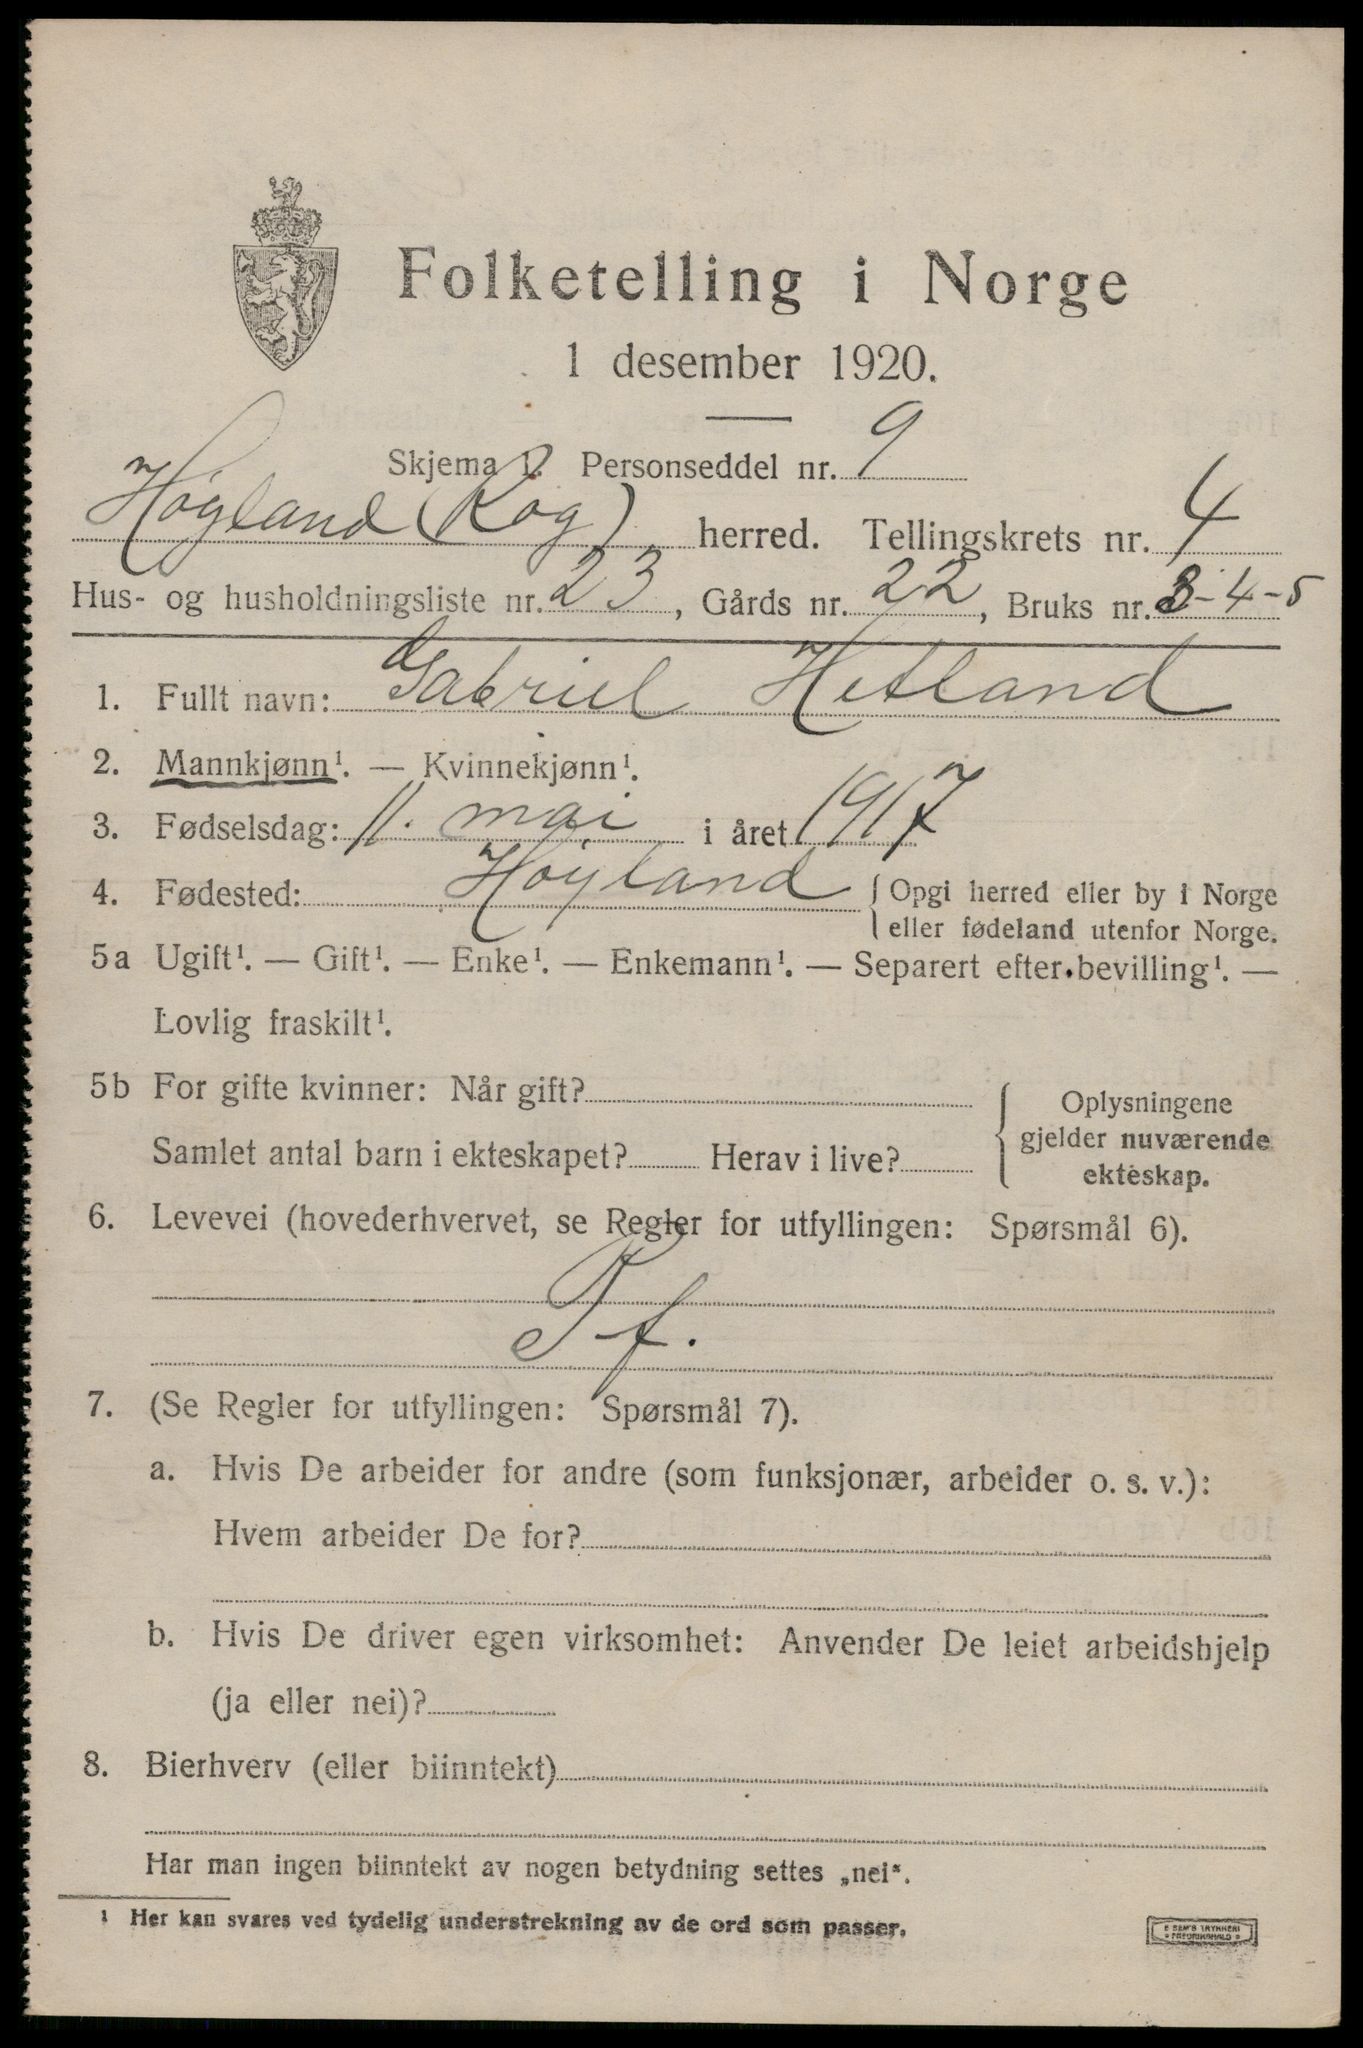 Folketelling i Norge
1 desember 1920.
Skjema 1. Personseddel nr. 9
Høyland (Rog) herred. Tellingskrets nr. 4
Hus- og husholdningsliste nr. 23, Gårds nr. 22, Bruks nr. 3-4-5
1. Fullt navn: Gabriel Hetland
2. Mannkjønn¹. — Kvinnekjønn¹.
3. Fødselsdag: 11. mai i året 1917
4. Fødested: Høyland { Opgi herred eller by i Norge
eller fødeland utenfor Norge.
5a Ugift¹. — Gift¹. — Enke¹. — Enkemann¹. — Separert efter bevilling¹. —
Lovlig fraskilt¹.
5b For gifte kvinner: Når gift?
Samlet antal barn i ekteskapet? Herav i live?
Oplysningene
gjelder nuværende
ekteskap.
6. Levevei (hovederhvervet, se Regler for utfyllingen: Spørsmål 6).
f.
7. (Se Regler for utfyllingen: Spørsmål 7).
a. Hvis De arbeider for andre (som funksjonær, arbeider o. s. v.):
Hvem arbeider De for?
b. Hvis De driver egen virksomhet: Anvender De leiet arbeidshjelp
(ja eller nei)?
8. Bierhverv (eller biinntekt)
Har man ingen biinntekt av nogen betydning settes „nei".
¹ Her kan svares ved tydelig understrekning av de ord som passer.
E SEM'S TRYKKERI
FREDRIKSHALD